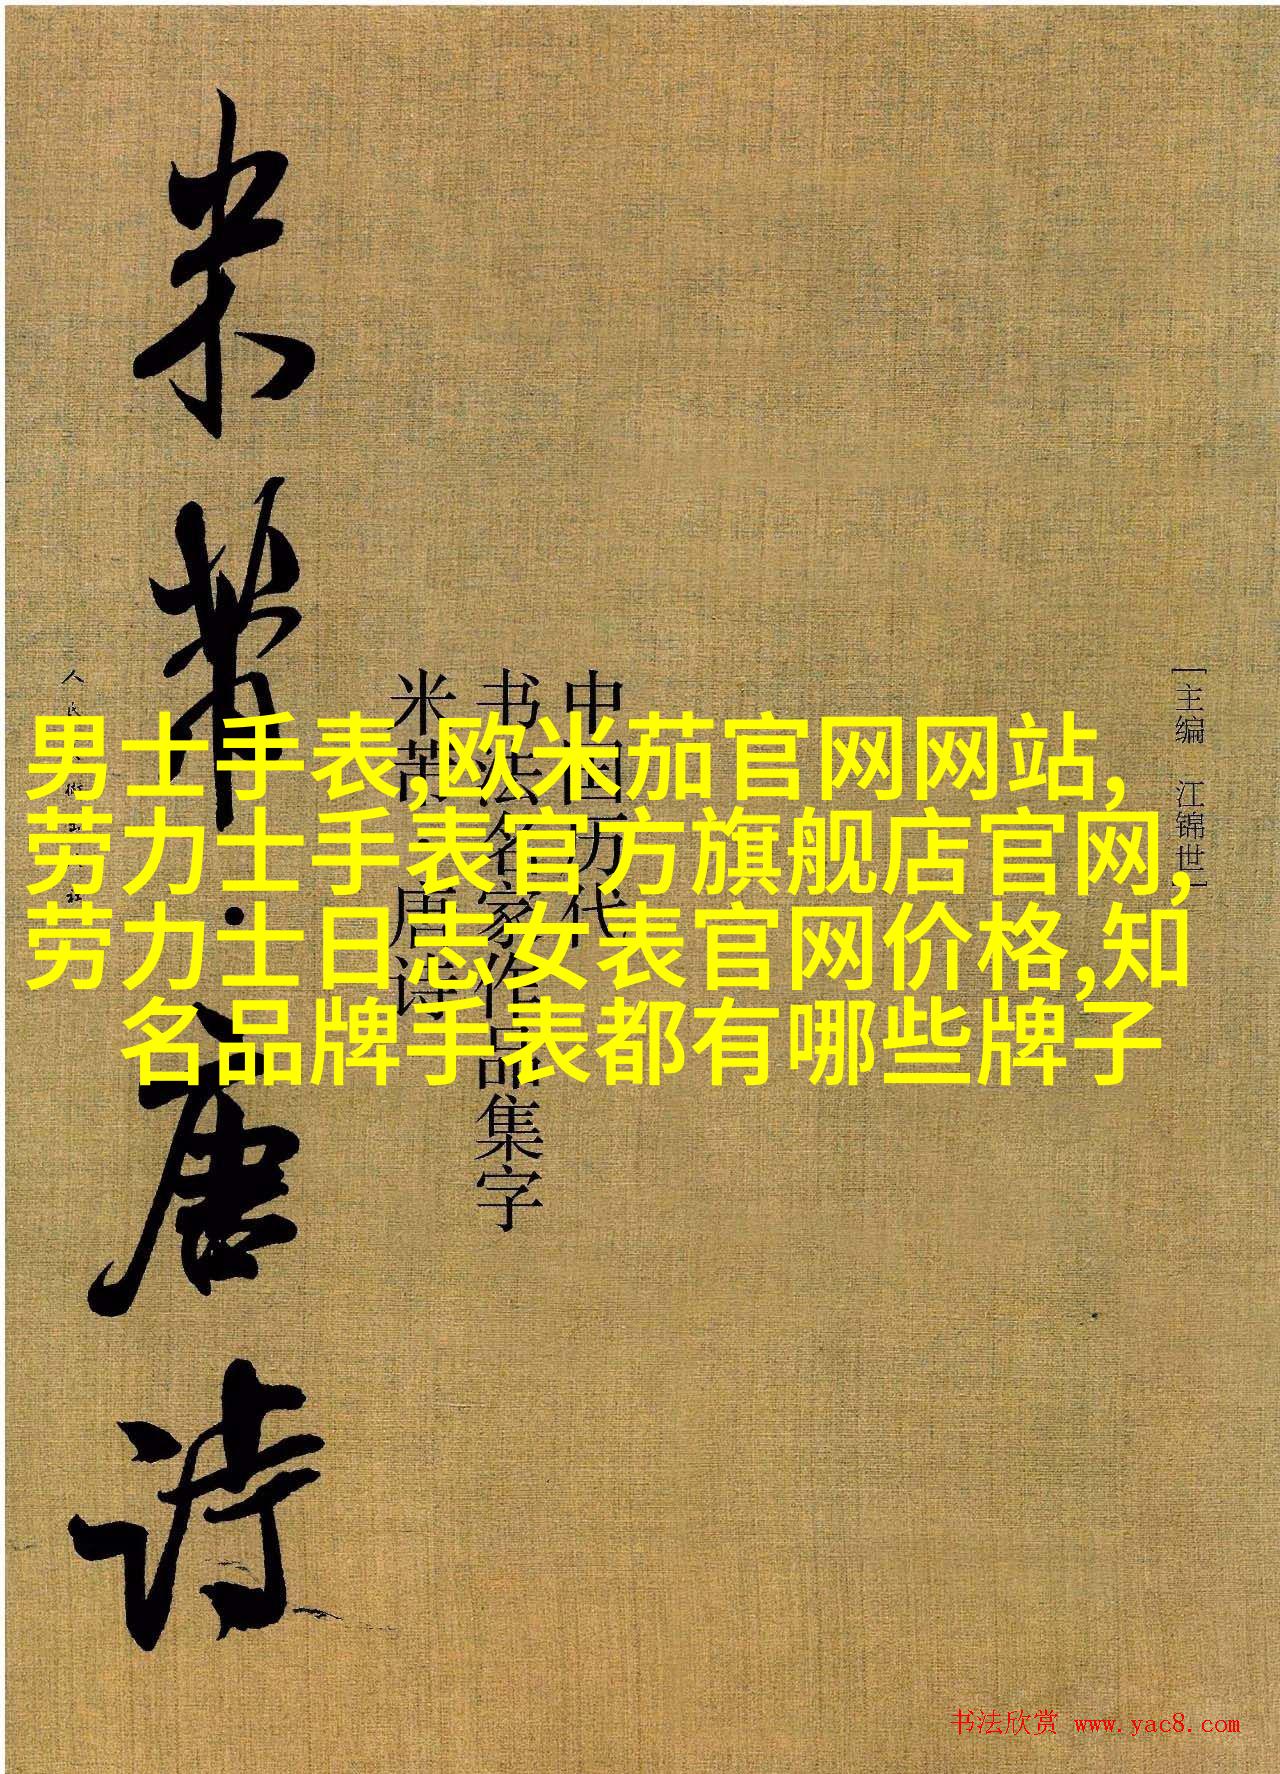 米芾·唐诗
人民美术出版社
米芾·唐诗
书法名家作品集字
中国历代
[主编 江锦世]
男士手表,欧米茄官网网站,
劳力士手表官方旗舰店官网,
劳力士日志女表官网价格,知
名品牌手表都有哪些牌子
书法欣赏 www.yac8.com